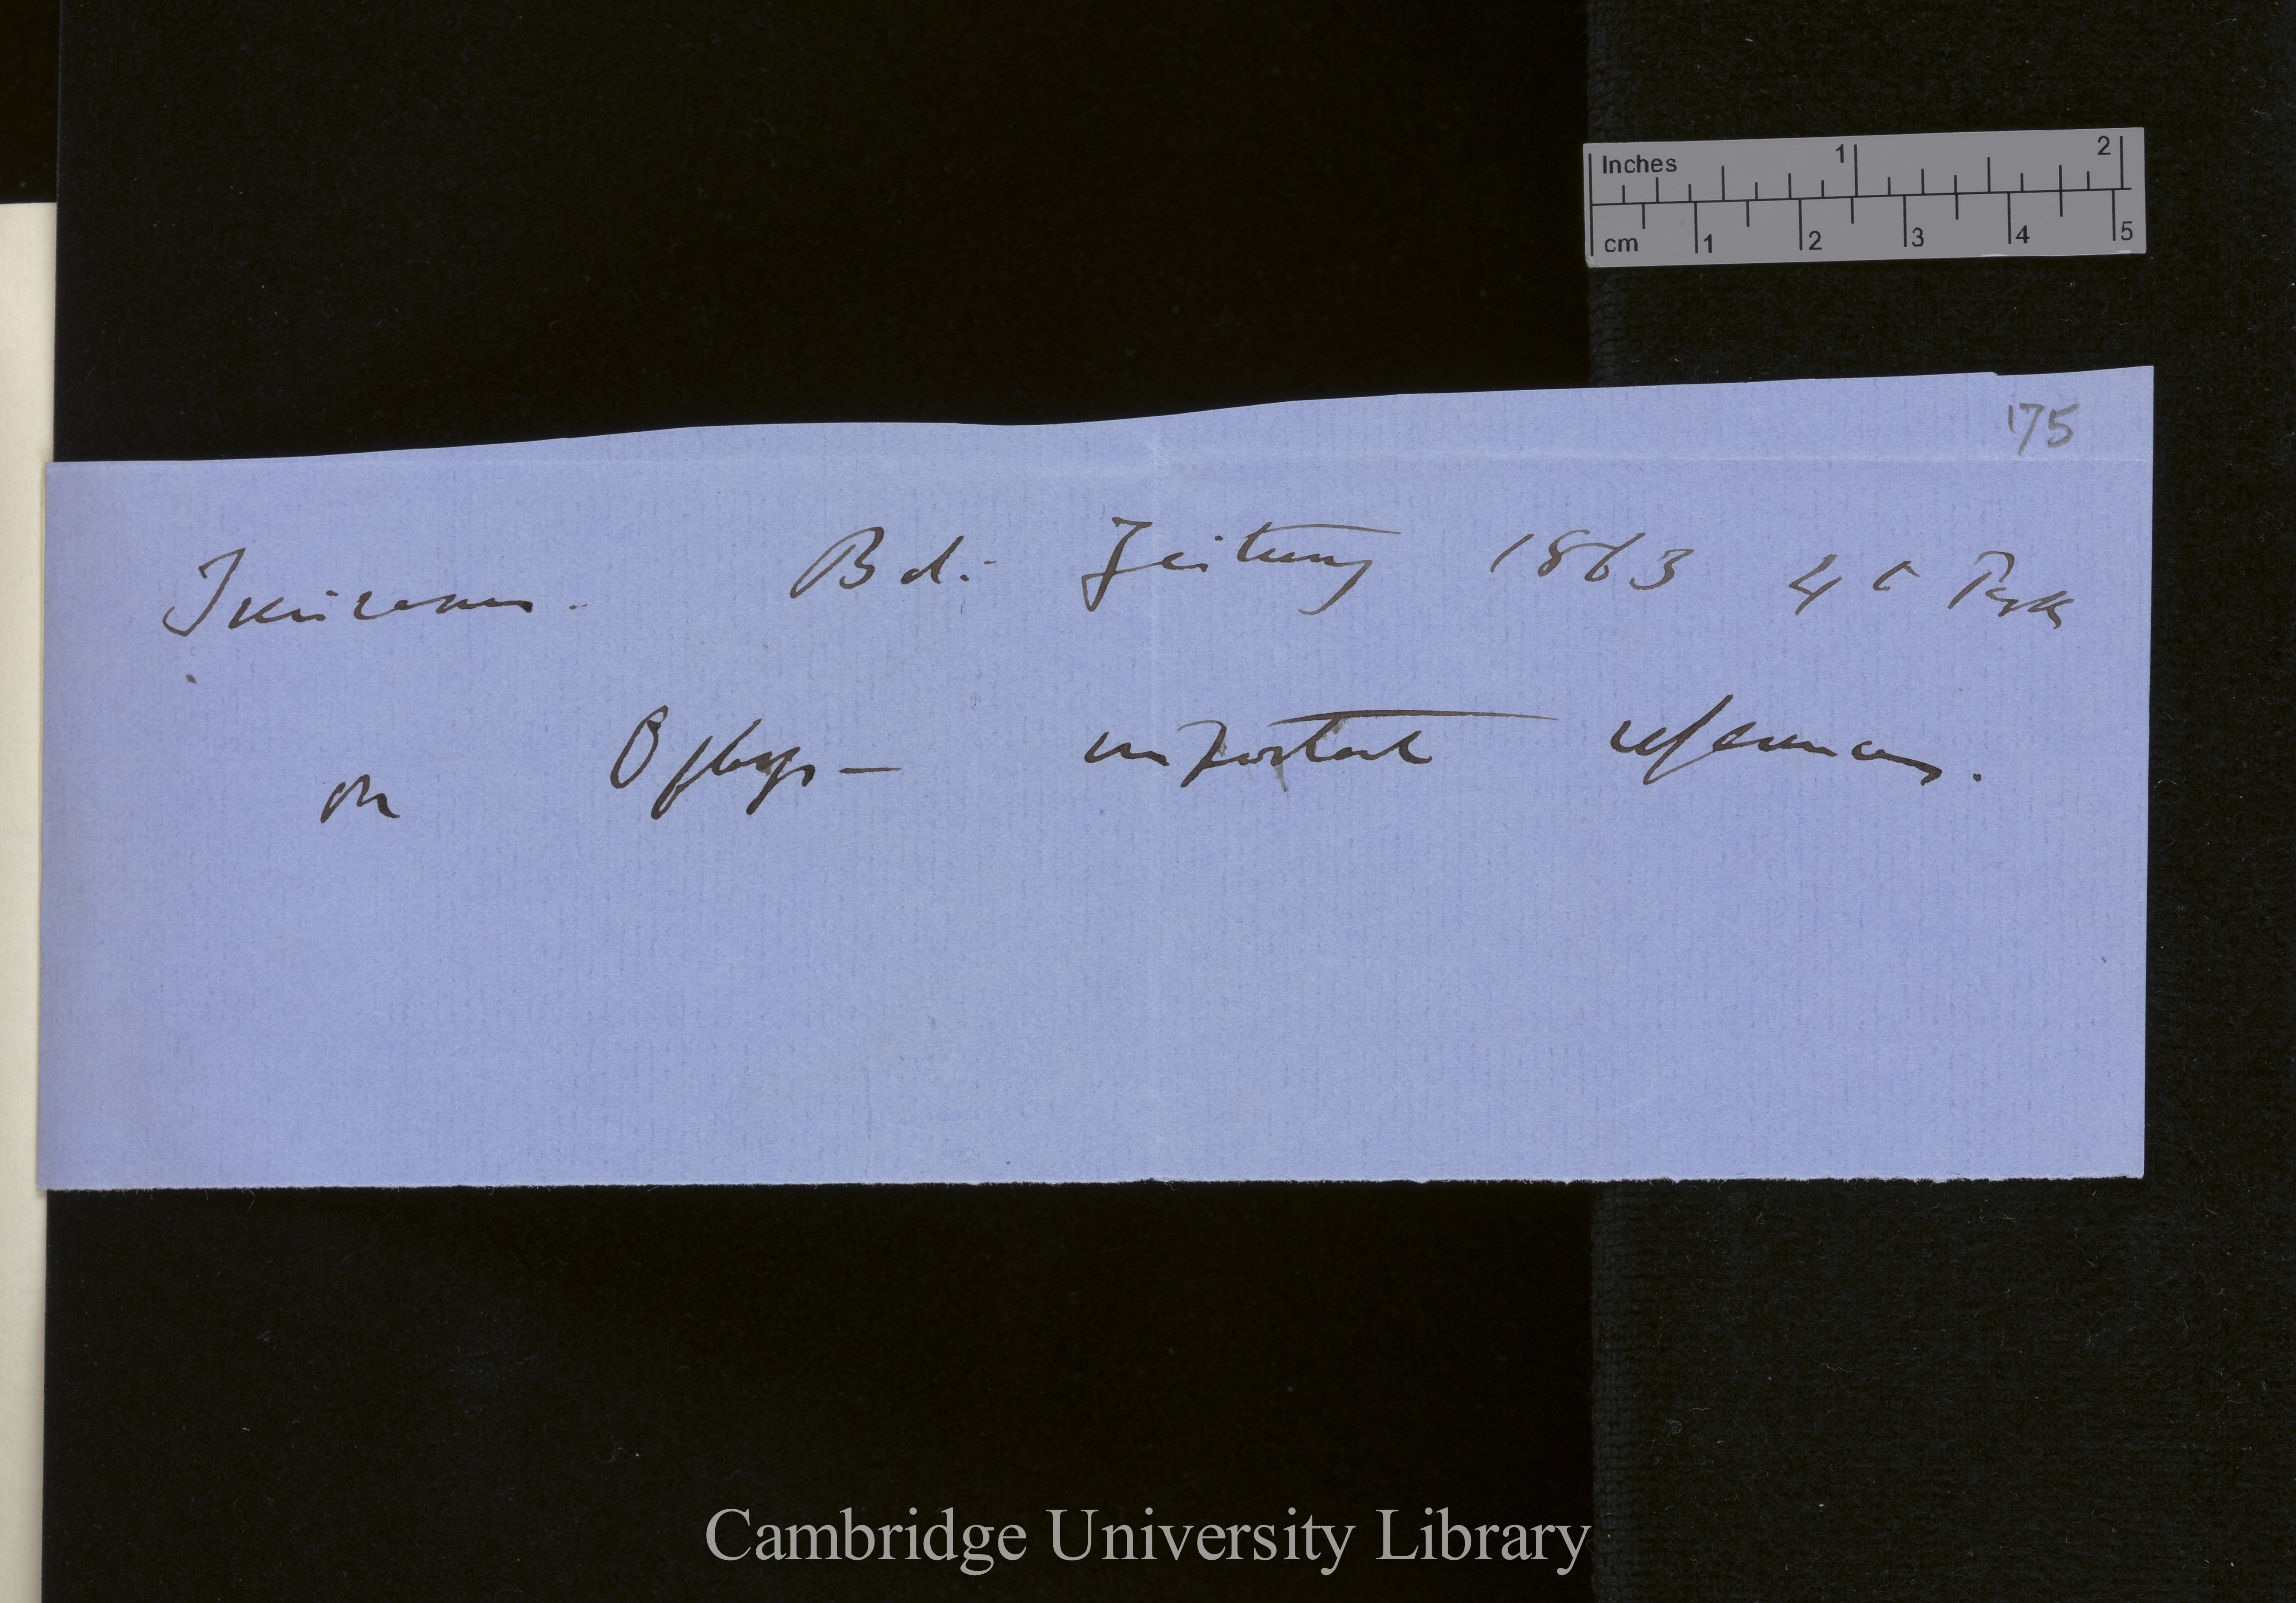 Inches 1 2
cm 1 2 3 4 5
175
Treviranus. Bot. Zeitung 1863 4
on Ophrys — important references.
Cambridge University Library